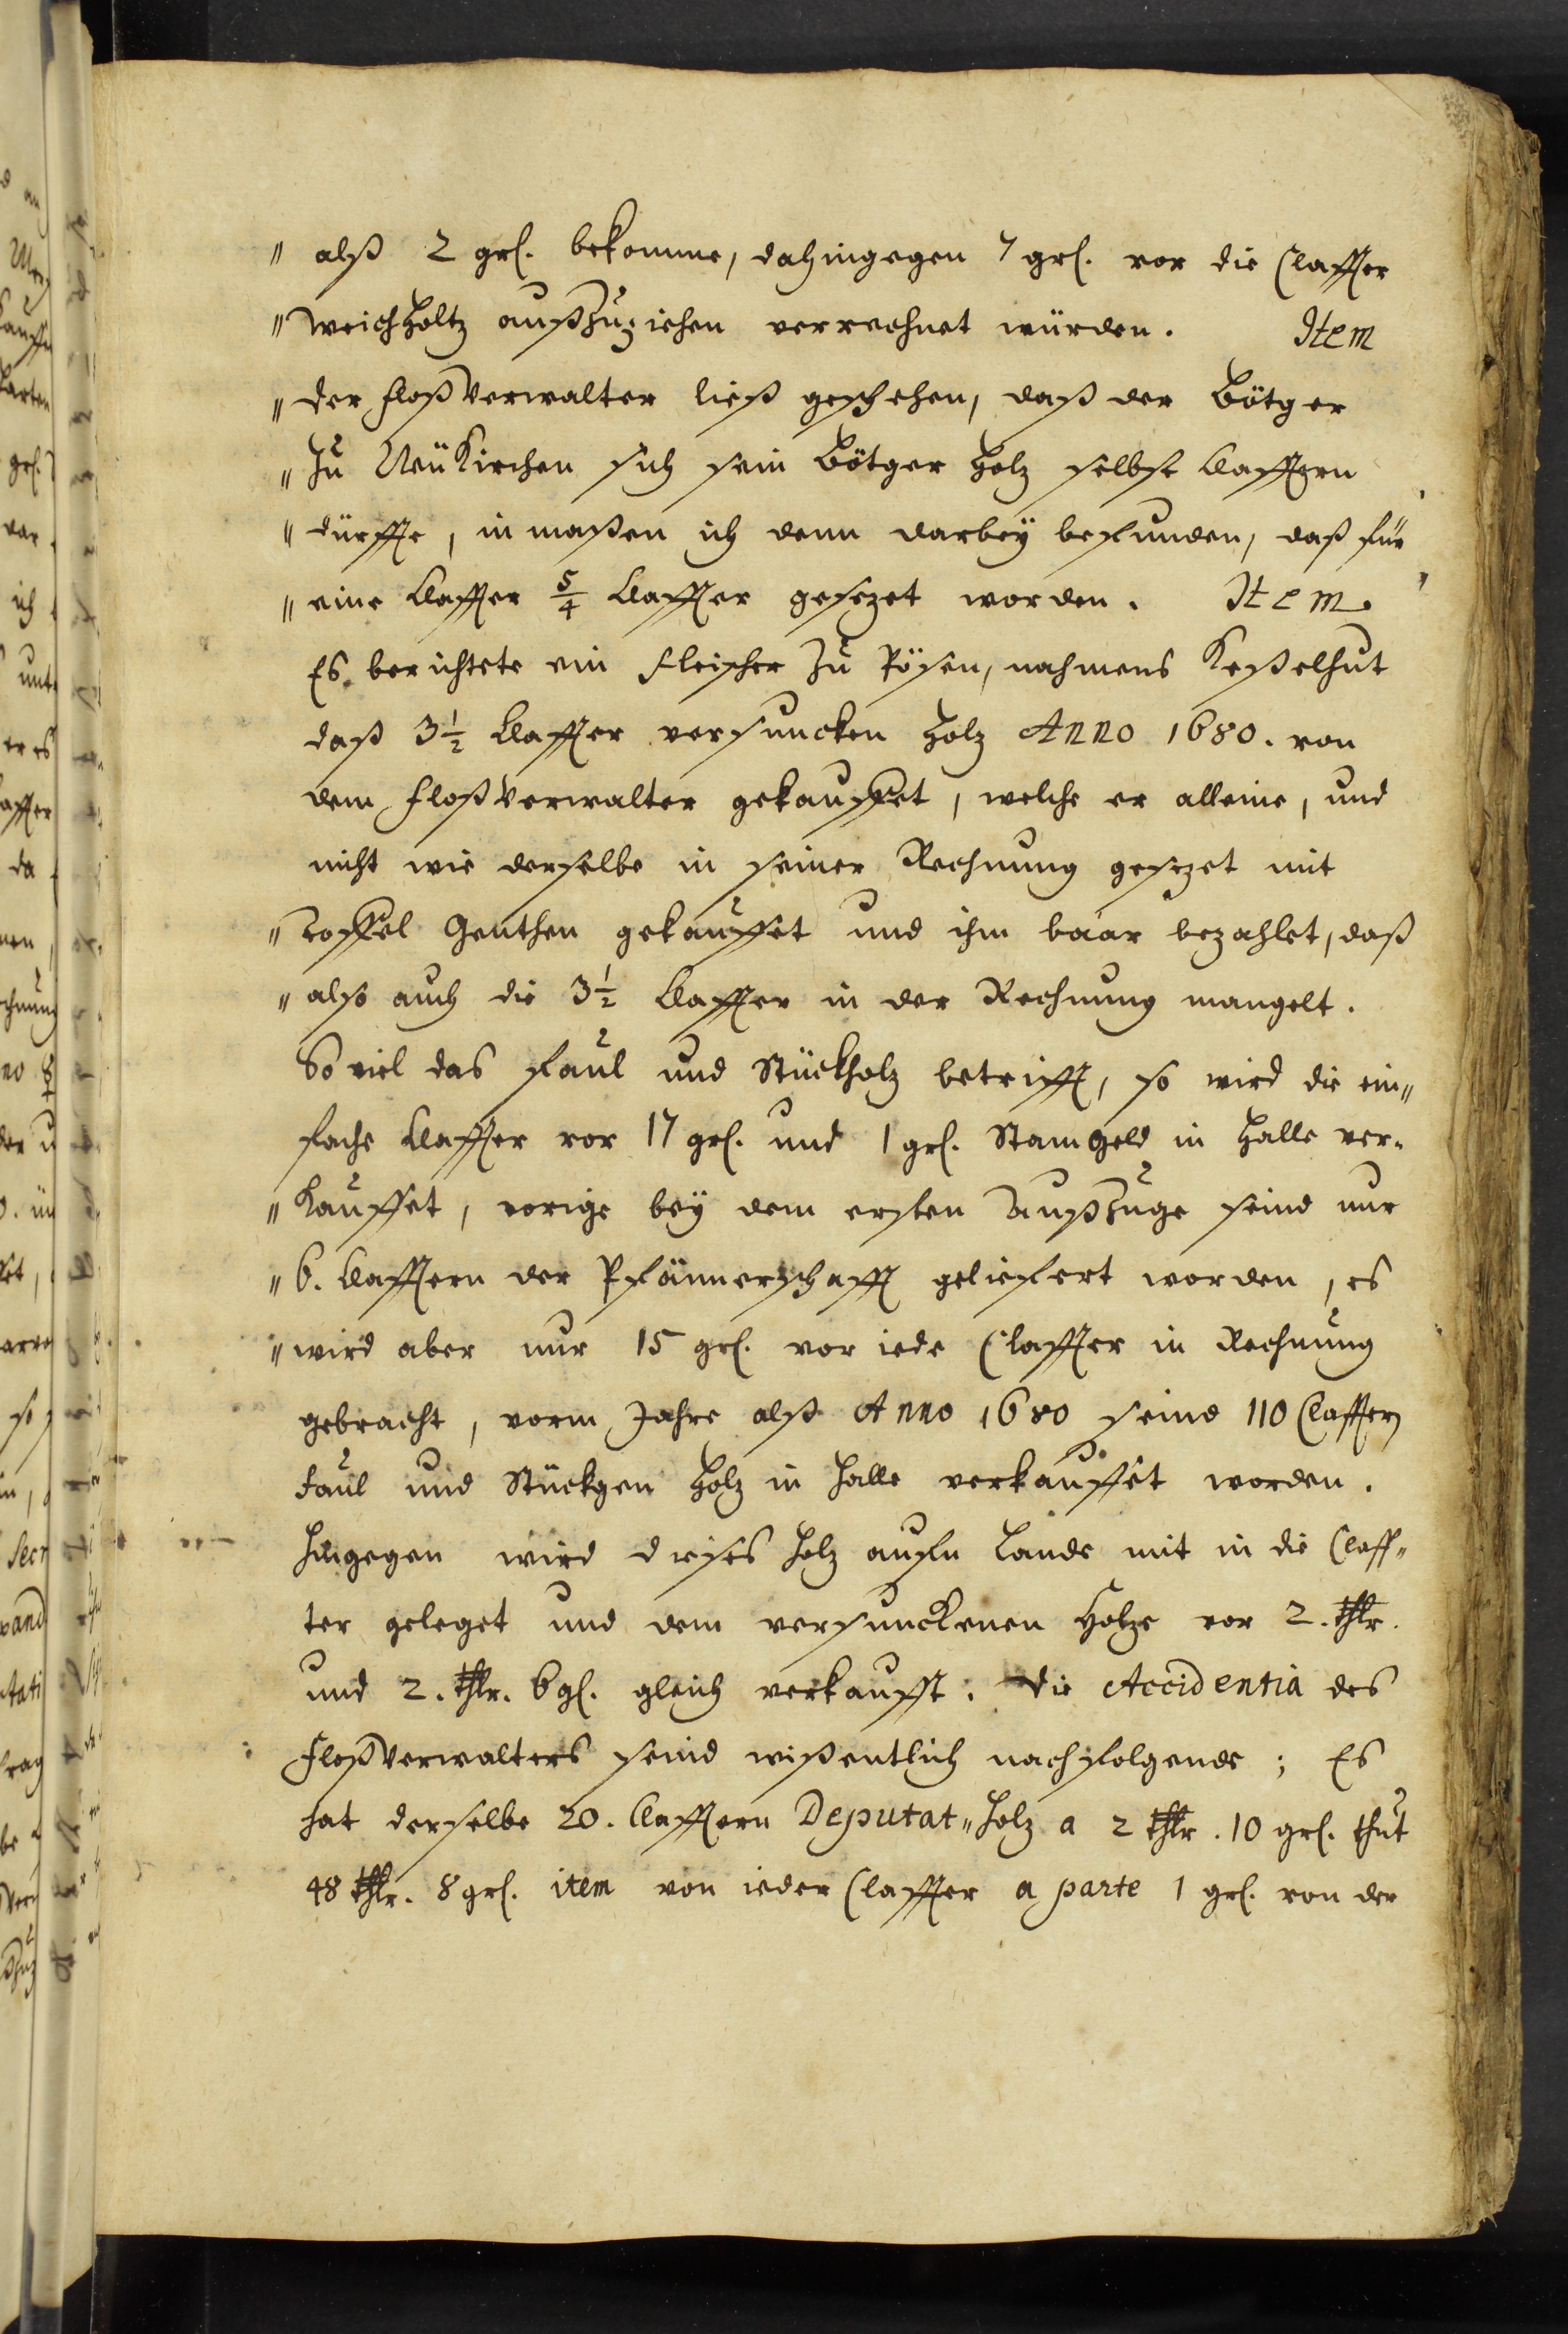 " alß 2 grl. bekomme, dahingegen 7 grl. vor die Claffter
" weichholtz außzuziehen verrechnet würden. Item
" der Floßverwalter ließ geschehen, daß der Bötger
" zu Neükirchen sich sein Bötger Holz selbst Clafftern
" dürffte, in maßen ich denn darbey befunden, daß für
" eine Claffter 5/4 Claffter gesezet worden. Item.
Es berichtete ein Fleischer zu Pösen, nahmens Keßelhut
daß 3 1/2 Claffter versuncken Holz Anno 1680. von
dem Floßverwalter gekauffet, welche er alleine, und
nicht wie derselbe in seiner Rechnung gesezet mit
" Toffel Genthen gekauffet und ihm baar bezahlet, daß
" also auch die 3 1/2 Claffter in der Rechnung mangelt.
So viel das faul und Stückholz betrifft, so wird die ein"
fache Claffter vor 17 grl. und 1 grl. Stamgeld in Halle ver-
" kauffet, vorige bey dem ersten Außzuge seind nur
" 6. Clafftern der Pfännerschafft geliefert worden, es
" wird aber nur 15 grl. vor iede Claffter in Rechnung
gebracht, vorm Jahre alß Anno 1680 seind 110 Clafftern
faul und Stückgen Holz in Halle verkauffet worden.
Hingegen wird dieses Holz aufm Lande mit in die Claff"
ter geleget und dem versunckenen Holze vor 2. thlr.
und 2. thlr. 6 gl. gleich verkaufft. Die Accidentia des
Floßverwalters seind wißentlich nachfolgende; Es
hat derselbe 20. Clafftern Deputat" Holz a 2 thlr. 10 grl. thut
48 thlr. 8 grl. item von ieder Claffter a parte 1 grl. von der